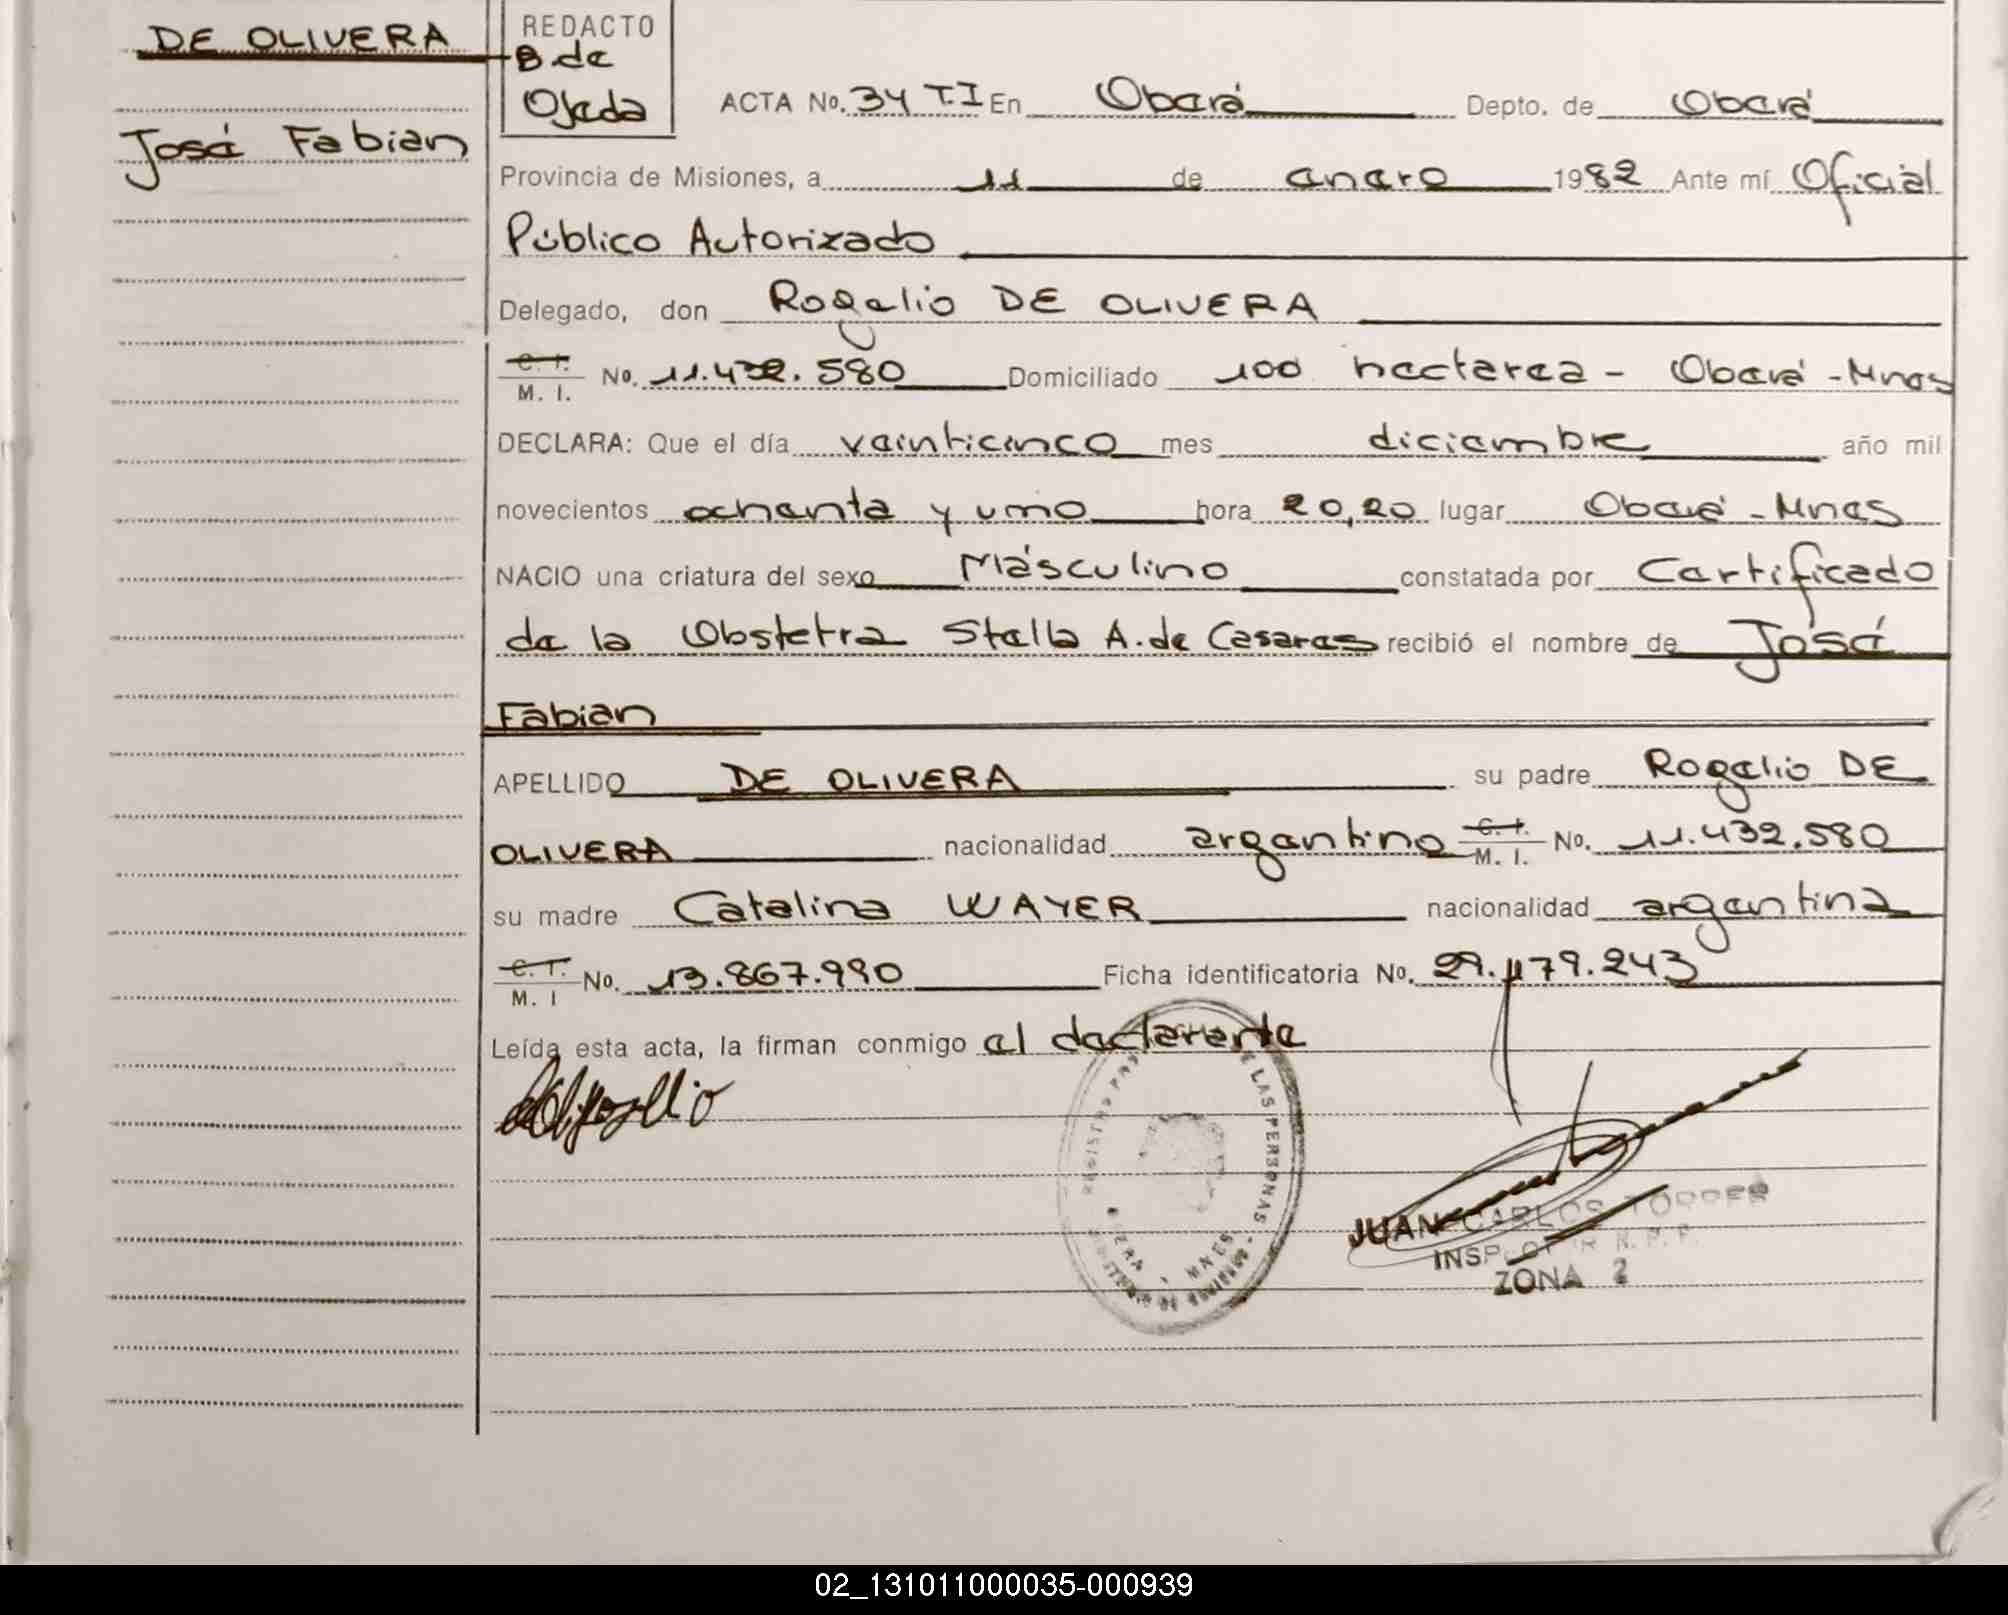 DE OLIVERA
José Fabian
REDACTO
B de
Ojeda
ACTA No. 34 T.I En Oberá Depto. de Oberá
Provincia de Misiones, a 11 de enero 1982 Ante mí Oficial
Público Autorizado
Delegado, don Rogelio DE OLIVERA
C. I.
M. I. No. 11.432.580 Domiciliado 100 hectarea - Oberá - Mnes
DECLARA: Que el día veinticinco mes diciembre año mil
novecientos ochenta y uno hora 20,20 lugar Oberá - Mnes
NACIO una criatura del sexo Másculino constatada por Certificado
de la Obstetra Stella A. de Caseres recibió el nombre de José
Fabian
APELLIDO DE OLIVERA su padre Rogelio DE
OLIVERA nacionalidad argentino C. I. M. I. No. 11.432.580
su madre Catalina WAYER nacionalidad argentina
C. I.
M. I No. 13.867.990 Ficha identificatoria No. 29.179.243
Leída esta acta, la firman conmigo el declarente
LAS PERSONAS
JUAN CARLOS TORRES
ZONA 2
02_131011000035-000939